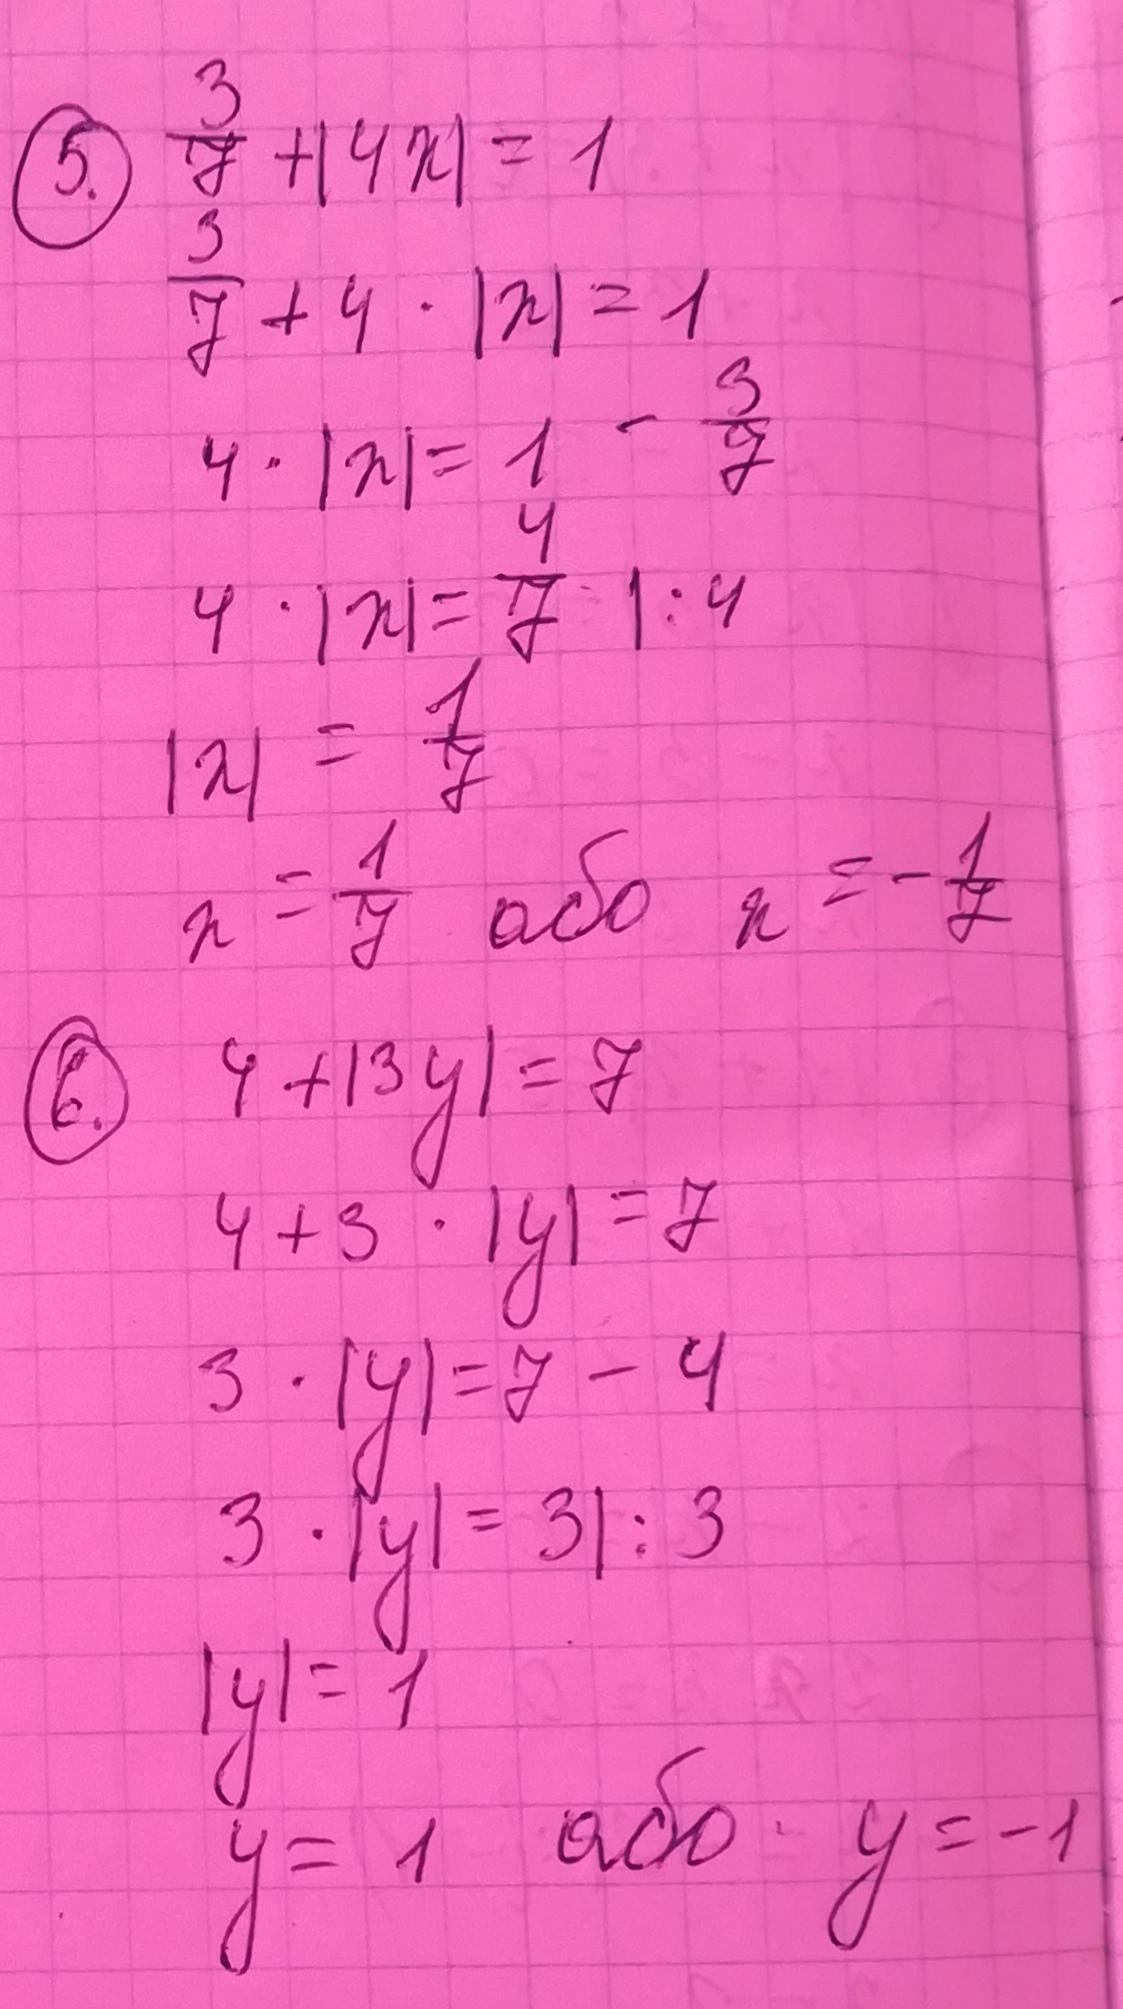 5. 3/7 + |4x| = 1
3/7 + 4 · |x| = 1
4 · |x| = 1 - 3/7
4 · |x| = 4/7 |:4
|x| = 1/7
x = 1/7 або x = -1/7
6. 4 + |3y| = 7
4 + 3 · |y| = 7
3 · |y| = 7 - 4
3 · |y| = 3 |:3
|y| = 1
y = 1 або y = -1